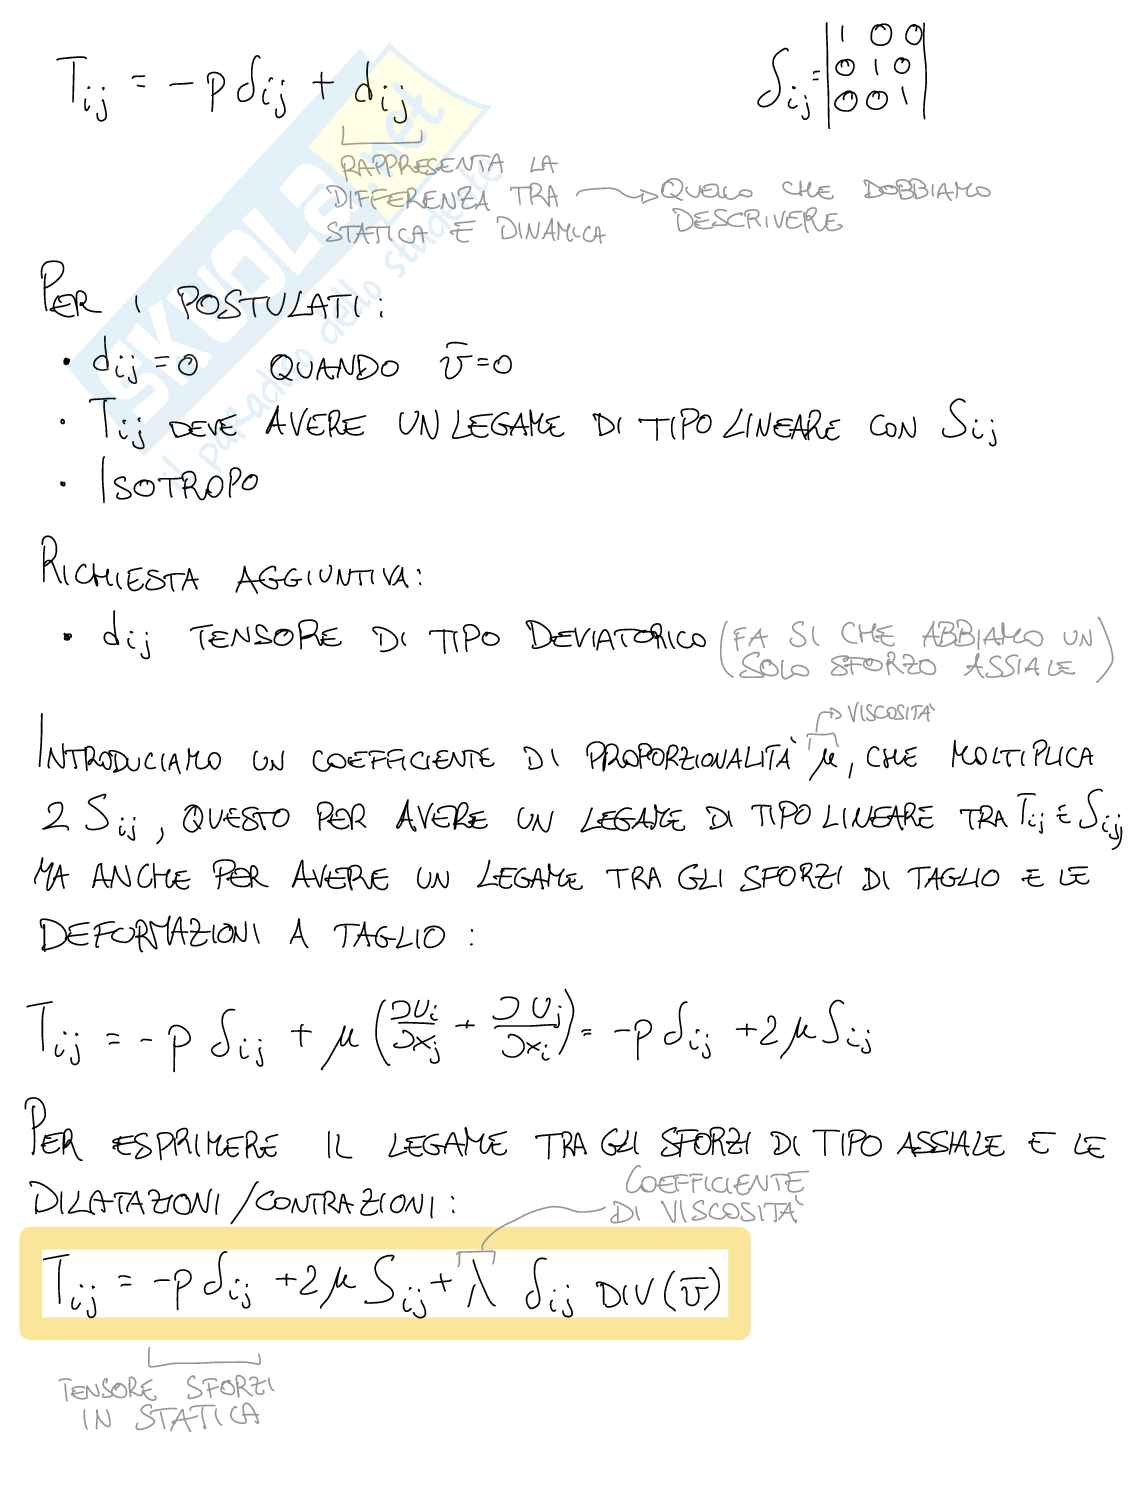 Tij = -p δij + dij
δij = | 1 0 0 |
| 0 1 0 |
| 0 0 1 |
RAPPRESENTA LA
DIFFERENZA TRA → QUELLO CHE DOBBIAMO
STATICA E DINAMICA DESCRIVERE
SKUOLA.net
il paradiso dello studente
PER I POSTULATI:
• dij = 0 QUANDO v̄ = 0
• Tij DEVE AVERE UN LEGAME DI TIPO LINEARE CON Sij
• ISOTROPO
RICHIESTA AGGIUNTIVA:
• dij TENSORE DI TIPO DEVIATORICO (FA SI CHE ABBIAMO UN
SOLO SFORZO ASSIALE)
→ VISCOSITÀ
INTRODUCIAMO UN COEFFICIENTE DI PROPORZIONALITÀ μ, CHE MOLTIPLICA
2 Sij, QUESTO PER AVERE UN LEGAME DI TIPO LINEARE TRA Tij E Sij
MA ANCHE PER AVERE UN LEGAME TRA GLI SFORZI DI TAGLIO E LE
DEFORMAZIONI A TAGLIO:
Tij = -p δij + μ (∂Ui/∂xj + ∂Uj/∂xi) = -p δij + 2 μ Sij
PER ESPRIMERE IL LEGAME TRA GLI SFORZI DI TIPO ASSIALE E LE
DILATAZIONI/CONTRAZIONI:
COEFFICIENTE
DI VISCOSITÀ
Tij = -p δij + 2 μ Sij + λ δij DIV(v̄)
TENSORE SFORZI
IN STATICA